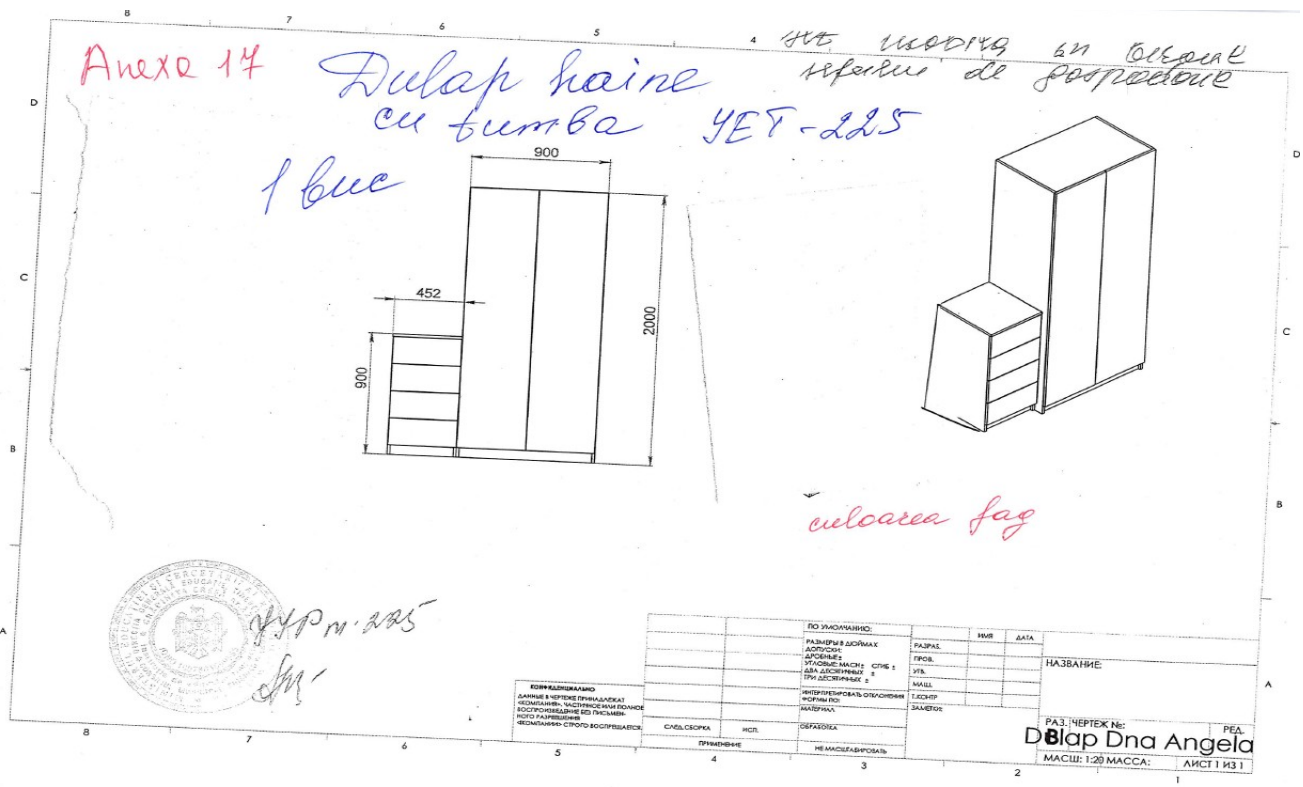 8 7 6 5 4
Anexa 17
Dulap haine
cu tumba УЕТ-225
1 buc
de
D
D
900
452
900
2000
C
C
B
B
culoarea fag
m. 225
A
A
КОНФИДЕНЦИАЛЬНО
ДАННЫЕ В ЧЕРТЕЖЕ ПРИНАДЛЕЖАТ
«КОМПАНИЯ». ЧАСТИЧНОЕ ИЛИ ПОЛНОЕ
ВОСПРОИЗВЕДЕНИЕ БЕЗ ПИСЬМЕН-
НОГО РАЗРЕШЕНИЯ
«КОМПАНИИ» СТРОГО ВОСПРЕЩАЕТСЯ.
СЛЕД.СБОРКА ИСП.
ПРИМЕНЕНИЕ
ПО УМОЛЧАНИЮ:
РАЗМЕРЫ В ДЮЙМАХ
ДОПУСКИ:
ДРОБНЫЕ±
УГЛОВЫЕ: МАСН± СГИБ ±
ДВА ДЕСЯТИЧНЫХ ±
ТРИ ДЕСЯТИЧНЫХ ±
ИНТЕРПРЕТИРОВАТЬ ОТКЛОНЕНИЯ
ФОРМЫ ПО:
МАТЕРИАЛ
ОБРАБОТКА
НЕ МАСШТАБИРОВАТЬ
ИМЯ ДАТА
РАЗРАБ.
ПРОВ.
УТВ.
МАШ.
Т.КОНТР
ЗАМЕТКИ:
НАЗВАНИЕ:
РАЗ. ЧЕРТЕЖ №: РЕД.
Dulap Dna Angela
МАСШ: 1:20 МАССА: ЛИСТ 1 ИЗ 1
8 7 6 5 4 3 2 1